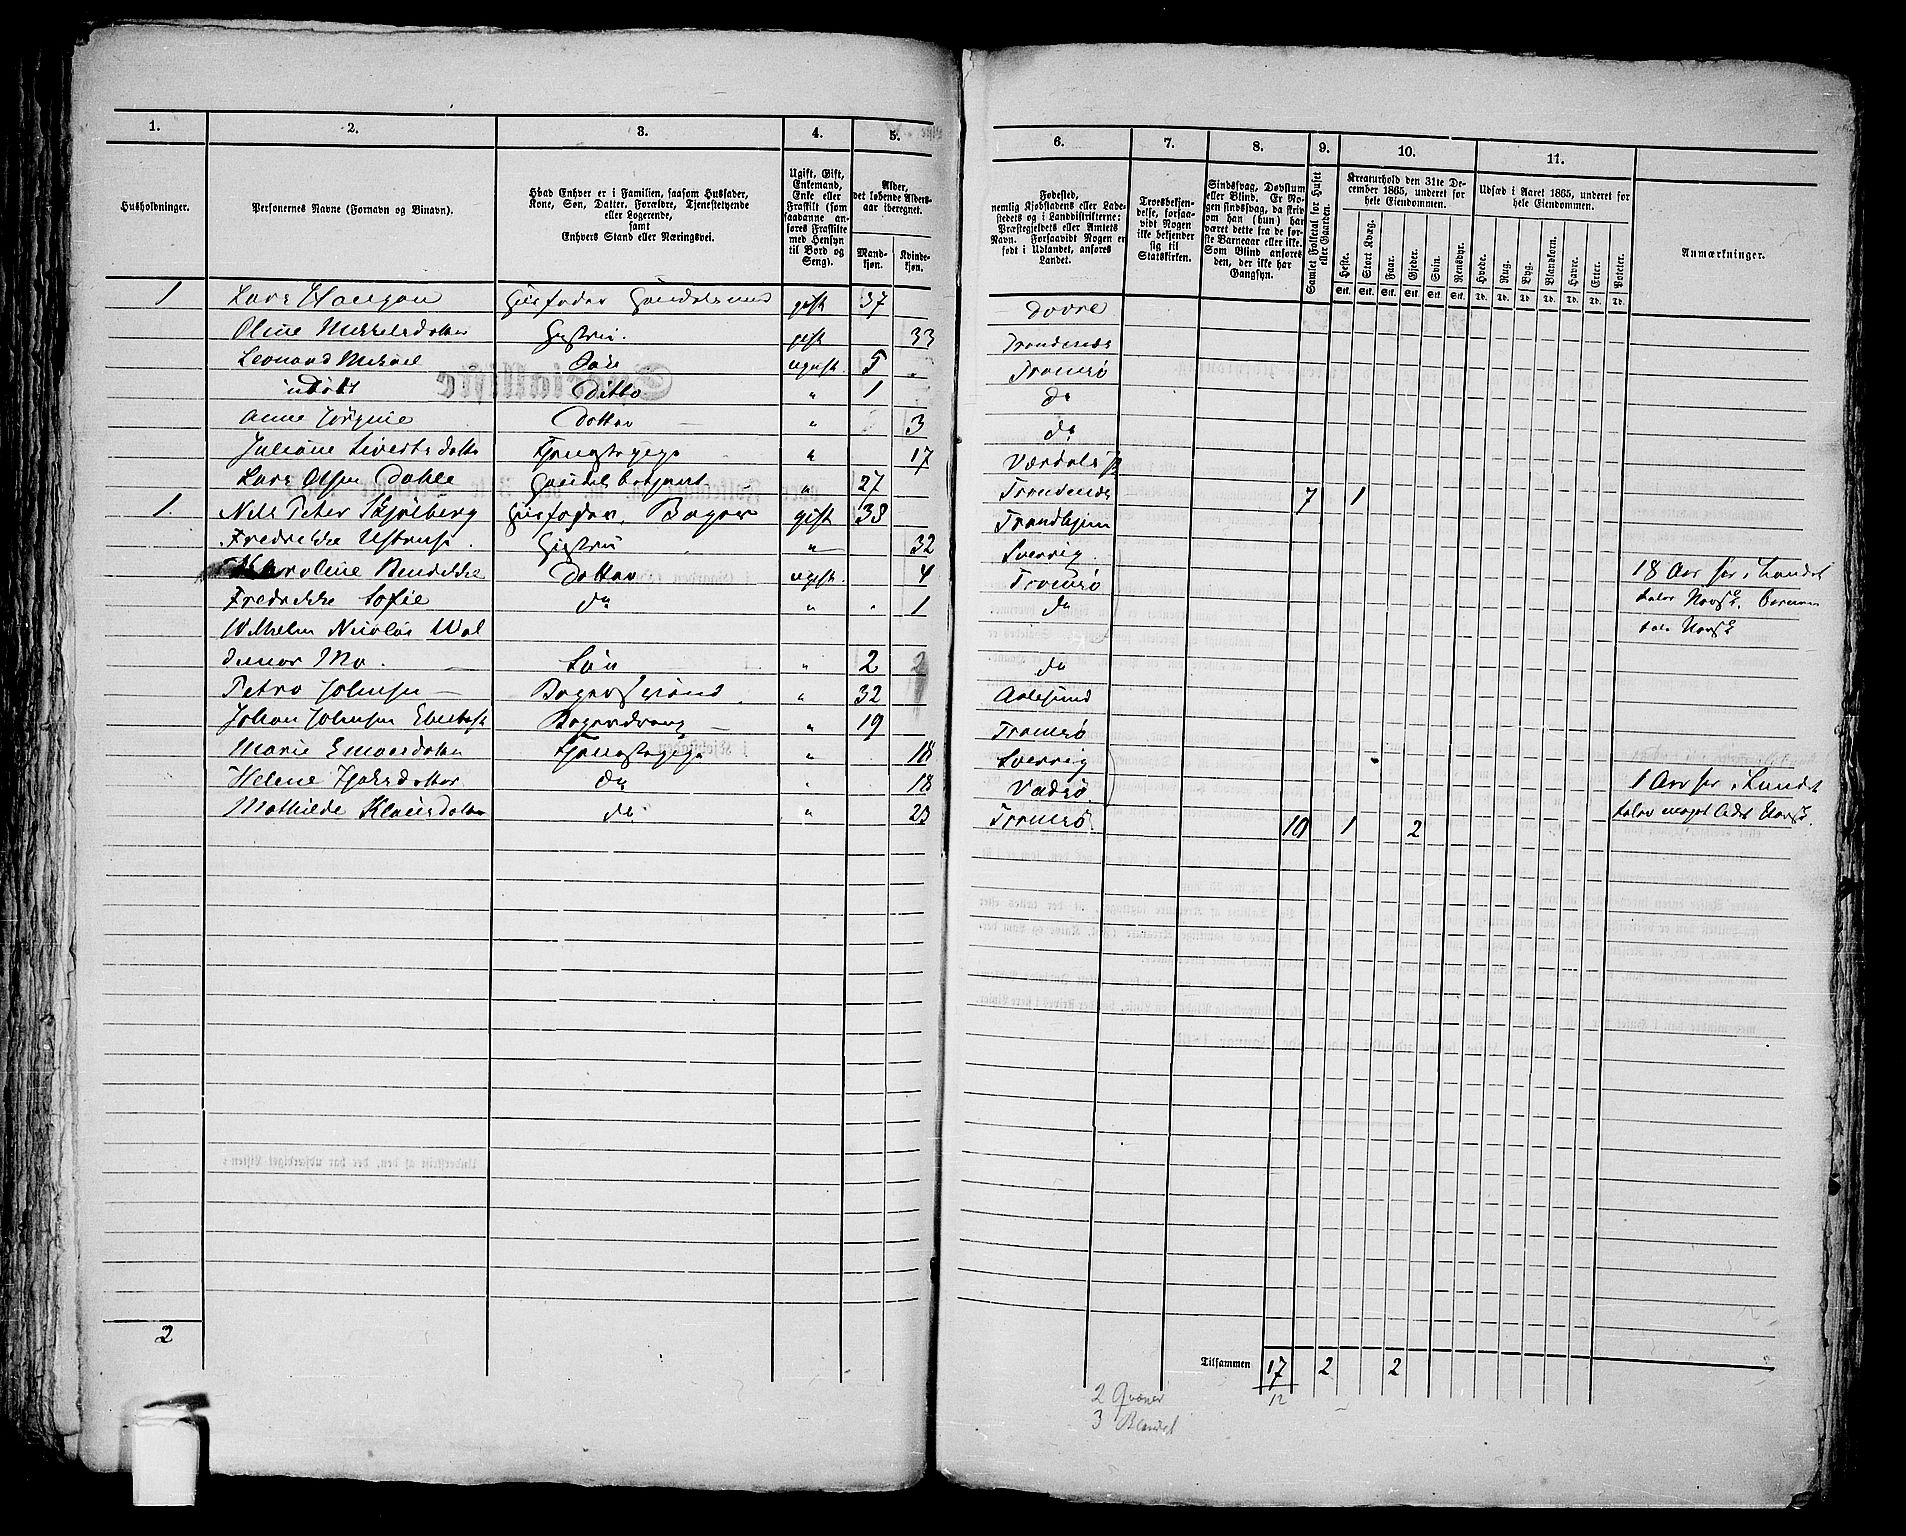 1. 2. 3. 4. 5.
Husholdninger. Personernes Navne (Fornavn og Binavn). Hvad Enhver er i Familien, saasom Husfader, Kone, Søn, Datter, Forældre, Tjenestetyende eller Logerende, samt Enhvers Stand eller Næringsvei. Ugift, Gift, Enkemand, Enke eller Fraskilt (som saadanne anføres Fraskilte med Hensyn til Bord og Seng). Alder, det løbende Aldersaar iberegnet. Mandkjøn. Kvindekjøn.
6. 7. 8. 9. 10. 11.
Fødested, nemlig Kjøbstadens eller Ladestedets og i Landdistrikterne: Præstegjeldets eller Amtets Navn. Forsaavidt Nogen er født i Udlandet, anføres Landet. Troesbekjendelse, forsaavidt Nogen ikke bekjender sig til Statskirken. Sindssvag, Døvstum eller Blind. Er Nogen sindssvag, da skriv om han (hun) har været dette fra de første Barneaar eller ikke. Som Blind anføres den, der ikke har Gangsyn. Samlet Folketal for Huset eller Gaarden. Kreaturhold den 31te December 1865, underet for hele Eiendommen. Heste. Stort Kvæg. Faar. Gjeder. Svin. Rensdyr. Udsæd i Aaret 1865, underet for hele Eiendommen. Hvede. Rug. Byg. Blandkorn. Havre. Erter. Poteter. Anmærkninger.
Stk. Stk. Stk. Stk. Stk. Stk. Td. Td. Td. Td. Td. Td. Td.
1 Lars Haugan Husfader gift 37 Dovre
Oline gift 33 Trondenæs
Leonard Mikael Søn ugift 5 Tromsø
udøbt Ditto " 1 do
Anne Jørgine Datter " 3 do
Juliane Sivertsdatter Tjenestepige " 17 Værdalen
Lars Olsen Dahle Handelsbetjent " 27 Trondenæs 7 1
1. Nils Peter Skjølberg Husfader, Bager gift 38 Trondhjem
Fredrikke Hustru " 32 Sverrig
Karoline Bendikke Datter ugift 4 Tromsø 18 Aar her i Landet
Fredrikke Sofie do " 1 do taler Norsk.
Vilhelm Nicolai Wal
demar Mo Søn " 2 do taler Norsk
Petro Johnsen Bagersvend " 32 Aalesund
Johan Johnsen Bagerdreng " 19 Tromsø
Marie Tjenestepige " 18 Sverrig 1 Aar her i Landet
Helene do " 18 Vadsø taler meget lidet Norsk.
Mathilde Klausdatter do " 23 Tromsø. 10 1 2
2 Tilsammen 17 2 2
12
2 Qvæner
3 Blandet